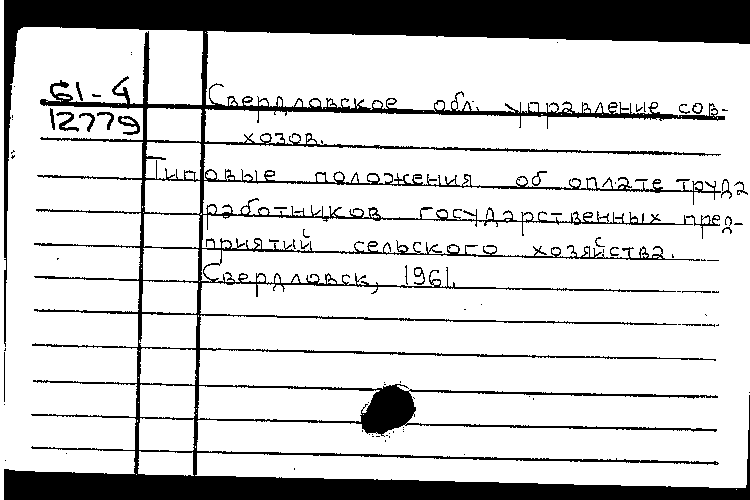 61-4
12779
Свердловское обл. управление сов-
хозов.
Типовые положения об оплате труда
работников государственных пред-
приятий сельского хозяйства.
Свердловск, 1961.